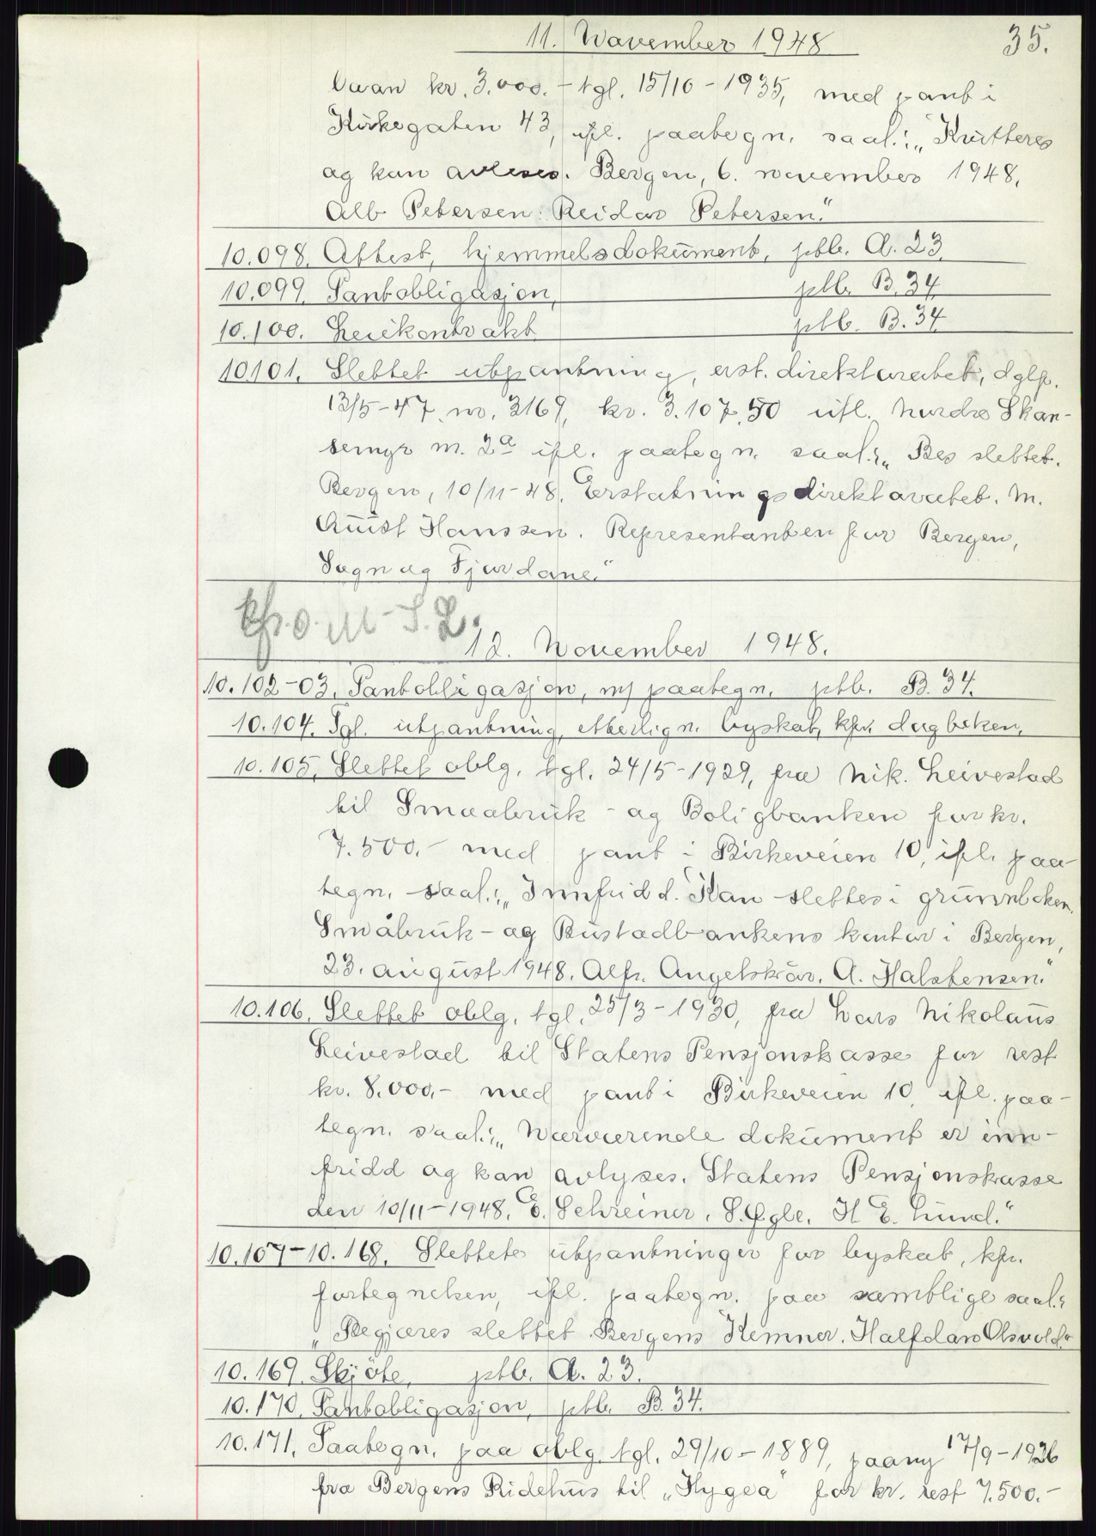 11. November 1948
35.
laan kr. 3.000.- tgl. 15/10-1935, med pant i
Kirkegaten 43, ifl. paategn. saal.: „Kvitteres
og kan avleses. Bergen, 6. november 1948.
Alb Petersen. Reidar Petersen."
10.098. Attest, hjemmelsdokument, ptb. A. 23.
10.099. Pantobligasjon, ptb. B. 34
10.100. Leiekontrakt ptb. B. 34
10101. Slettet utpantning, erst. direktoratet, dglp.
13/5-47 nr. 3169, kr. 3.107,50 ifl. Nordre Skan-
semyr m. 2a ifl. paategn. saal.: „Bes slettet.
Bergen, 10/11-48. Erstatningsdirektoratet. M.
Aaust Hanssen. Representanten for Bergen,
Sogn og Fjordane."
12. November 1948.
10.102-03. Pantobligasjon, m/ paategn. ptb. B. 34.
10.104. Tgl. utpantning, etterlign. byskatt, kfr. dagboken.
10.105. Slettet oblg. tgl. 24/5-1929, fra Nik. Leivestad
til Smaabruk- og Boligbanken for kr.
7.500.- med pant i Birkeveien 10, ifl. paa-
tegn. saal.: „Innfridd. Kan slettes i grunnboken.
Småbruk- og Bustadbankens kontor i Bergen,
23. august 1948. Alfr. Angelskår. A. Halstensen."
10.106. Slettet oblg. tgl. 25/3-1930, fra Lars Nikolaus
Leivestad til Statens Pensjonskasse for rest
kr. 8.000.- med pant i Birkeveien 10, ifl. paa-
tegn. saal.: „Nærværende dokument er inn-
fridd og kan avlyses. Statens Pensjonskasse
den 10/11-1948. E. Schreiner. S. Øgle. H E. Lund."
10.107-10.168. Slettete utpantninger for byskatt, kfr.
fortegnelsen, ifl. paategn. paa samtlige saal.:
„Begjæres slettet Bergens Kemner. Halfdan Olsvold."
10.169. Skjöte, ptb. A. 23.
10.170. Pantobligasjon, ptb. B. 34.
10.171. Paategn. paa oblg. tgl. 29/10-1889, paany 17/9-1926
fra Bergens Ridehus til „Hygea" for kr. rest 7.500.-